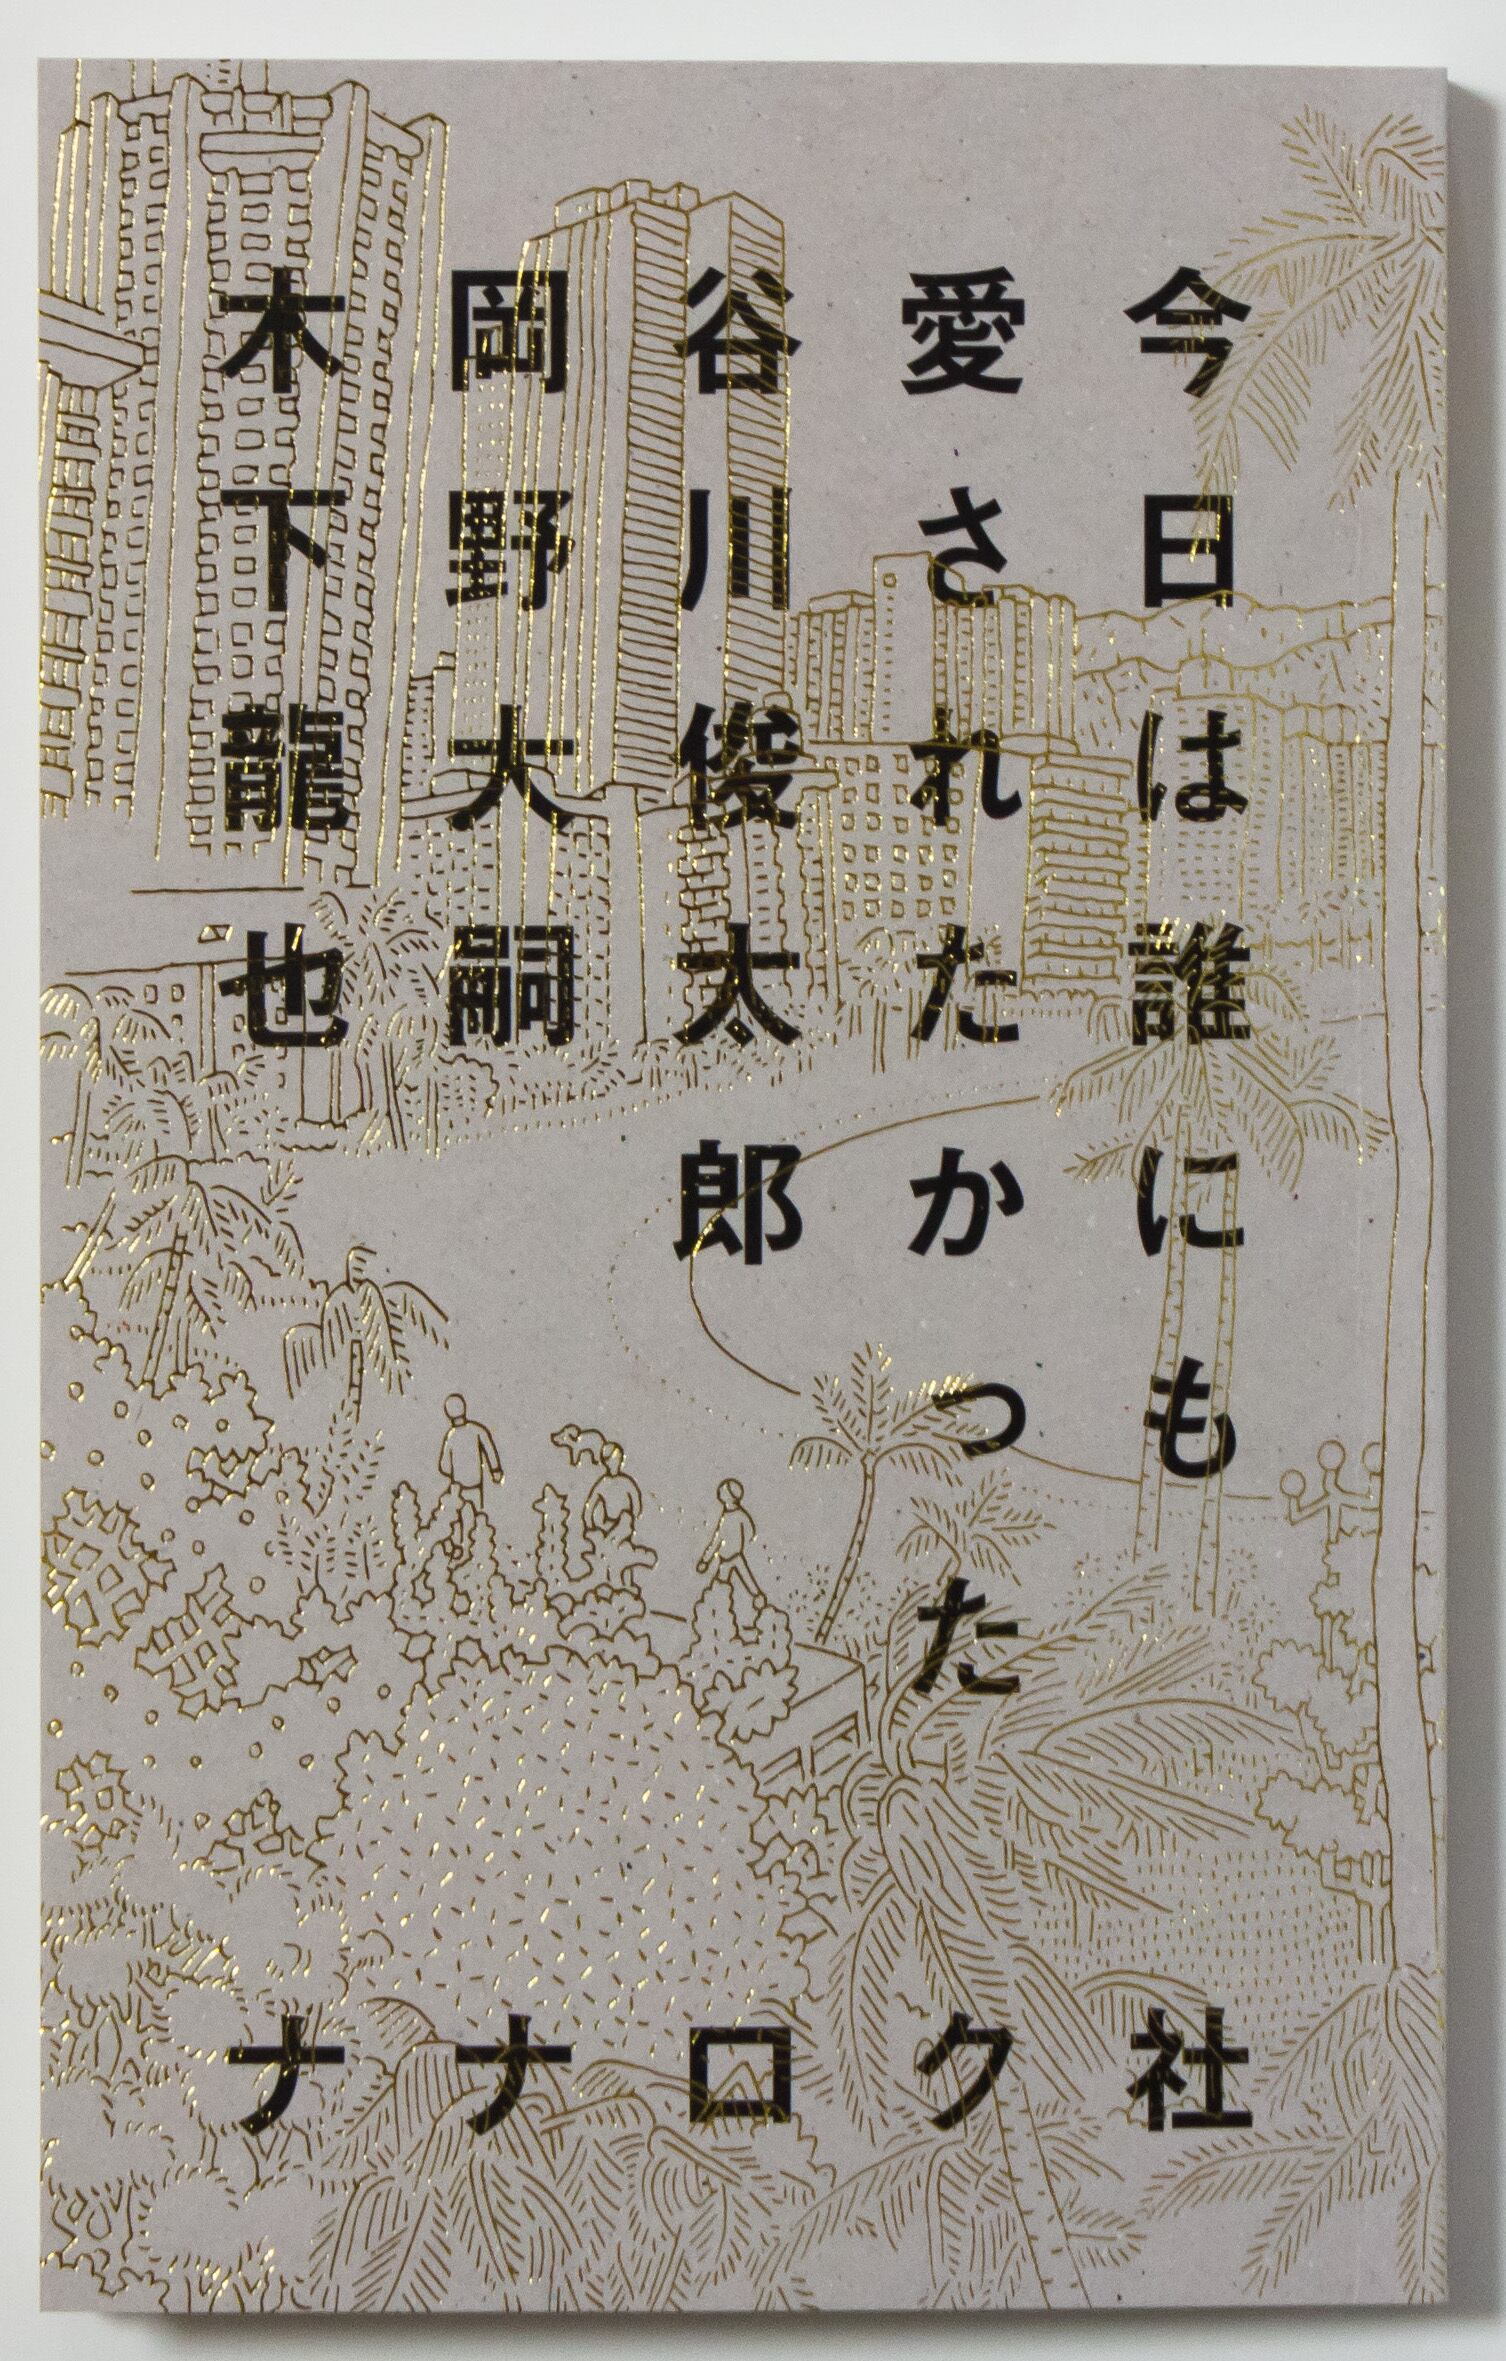 今日は誰にも
愛されたかった
谷川俊太郎
岡野大嗣
木下龍也
ナナロク社